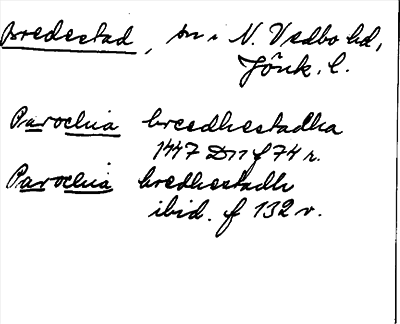 Bredestad, sn i N. Vedbo hd,
Jönk. l.
Parochia breedhestadha
1447 Dn f 74 r.
Parochia bredhestadh
ibid. f 132 v.